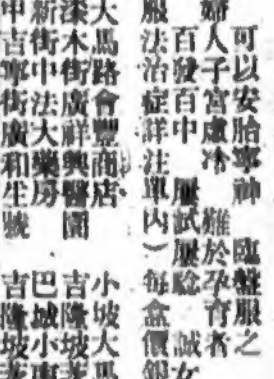 可以安胎寧神臨盤服之
婦人子宮虛冷難於孕育者
百發百中屢試屢驗誠女
服法治症詳注單內）每盒價銀
大馬路會豐商店 小坡大馬
漆木街廣祥興醫園 吉隆坡
新街中法大藥房 巴城小
甲吉寧街廣和生號 吉隆坡